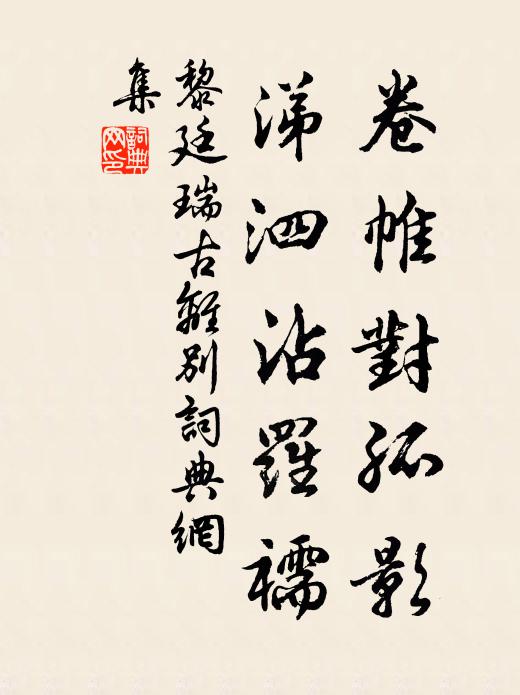 卷帷對孤影
涕泗沾羅襦
黎廷瑞古離別詞典網
集
詞典網印